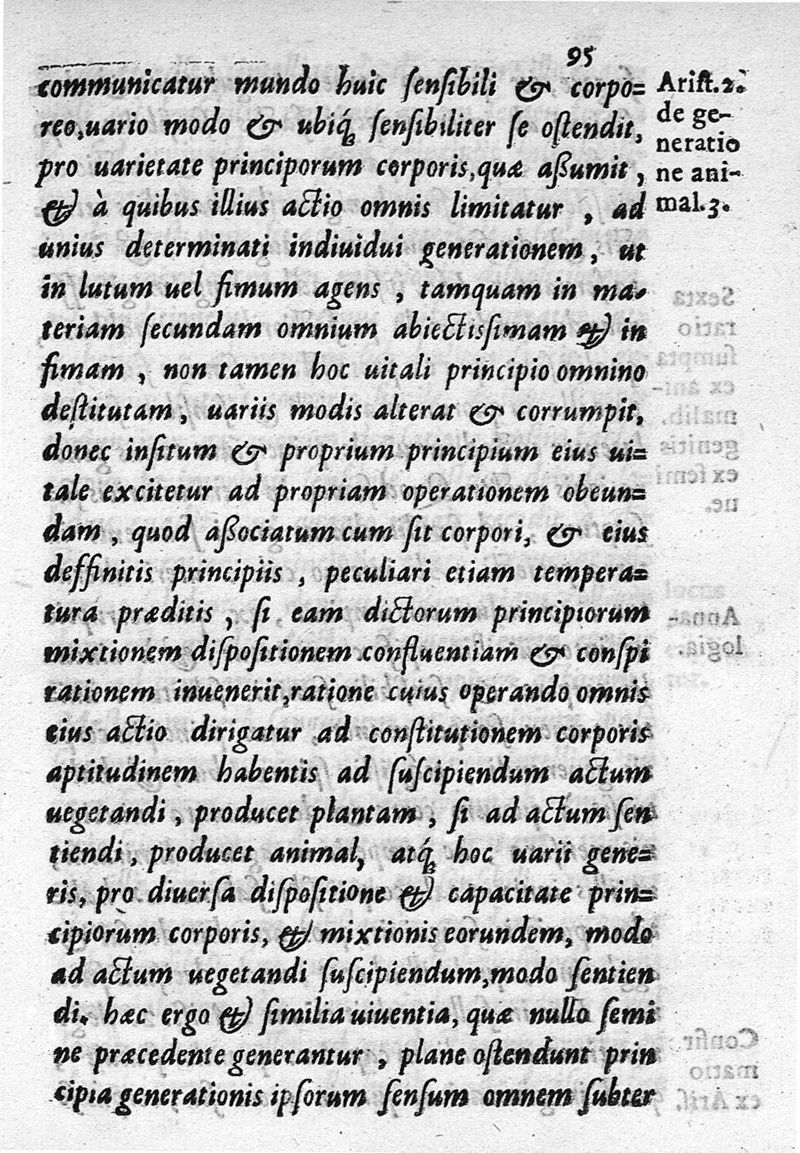 95
communicatur mundo huic ſenſibili & corpo=
reo, uario modo & ubiq́; ſenſibiliter ſe oſtendit,
pro uarietate principorum corporis, quæ aßumit,
& à quibus illius actio omnis limitatur, ad
unius determinati indiuidui generationem, ut
in lutum uel fimum agens, tamquam in ma-
teriam ſecundam omnium abiectisſimam & in
fimam, non tamen hoc uitali principio omnino
deſtitutam, uariis modis alterat & corrumpit,
donec inſitum & proprium principium eius ui=
tale excitetur ad propriam operationem obeun=
dam, quod aßociatum cum ſit corpori, & eius
deffinitis principiis, peculiari etiam tempera=
tura præditis, ſi eam dictorum principiorum
mixtionem diſpoſitionem confluentiam & conſpi
rationem inuenerit, ratione cuius operando omnis
eius actio dirigatur ad conſtitutionem corporis
aptitudinem habentis ad ſuſcipiendum actum
uegetandi, producet plantam, ſi ad actum ſen
tiendi, producet animal, atq́; hoc uarii gene=
ris, pro diuerſa diſpoſitione & capacitate prin=
cipiorum corporis, & mixtionis eorundem, modo
ad actum uegetandi ſuſcipiendum, modo ſentien
di. hæc ergo & ſimilia uiuentia, quæ nullo ſemi
ne præcedente generantur, plane oſtendunt prin
cipia generationis ipſorum ſenſum omnem ſubter
Ariſt. 2.
de ge-
neratio
ne ani-
mal. 3.